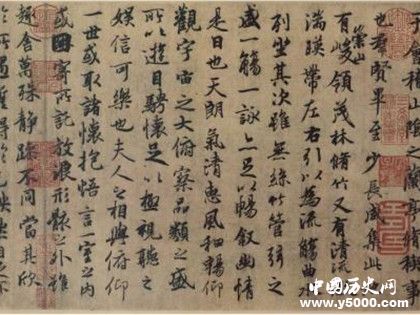 于會稽山陰之蘭亭脩稧事
也羣賢畢至少長咸集此
有崇山峻領茂林脩竹又有清
湍暎帶左右引以為流觴曲水
列坐其次雖無絲竹管弦之
盛一觴一詠亦足以暢敘幽情
是日也天朗氣清惠風和暢仰
觀宇宙之大俯察品類之盛
所以遊目騁懷足以極視聽之
娛信可樂也夫人之相與俯仰
一世或取諸懷抱悟言一室之內
或因寄所託放浪形骸之外雖
趣舍萬殊靜躁不同當其欣
於所遇
中国历史网
www.y5000.com